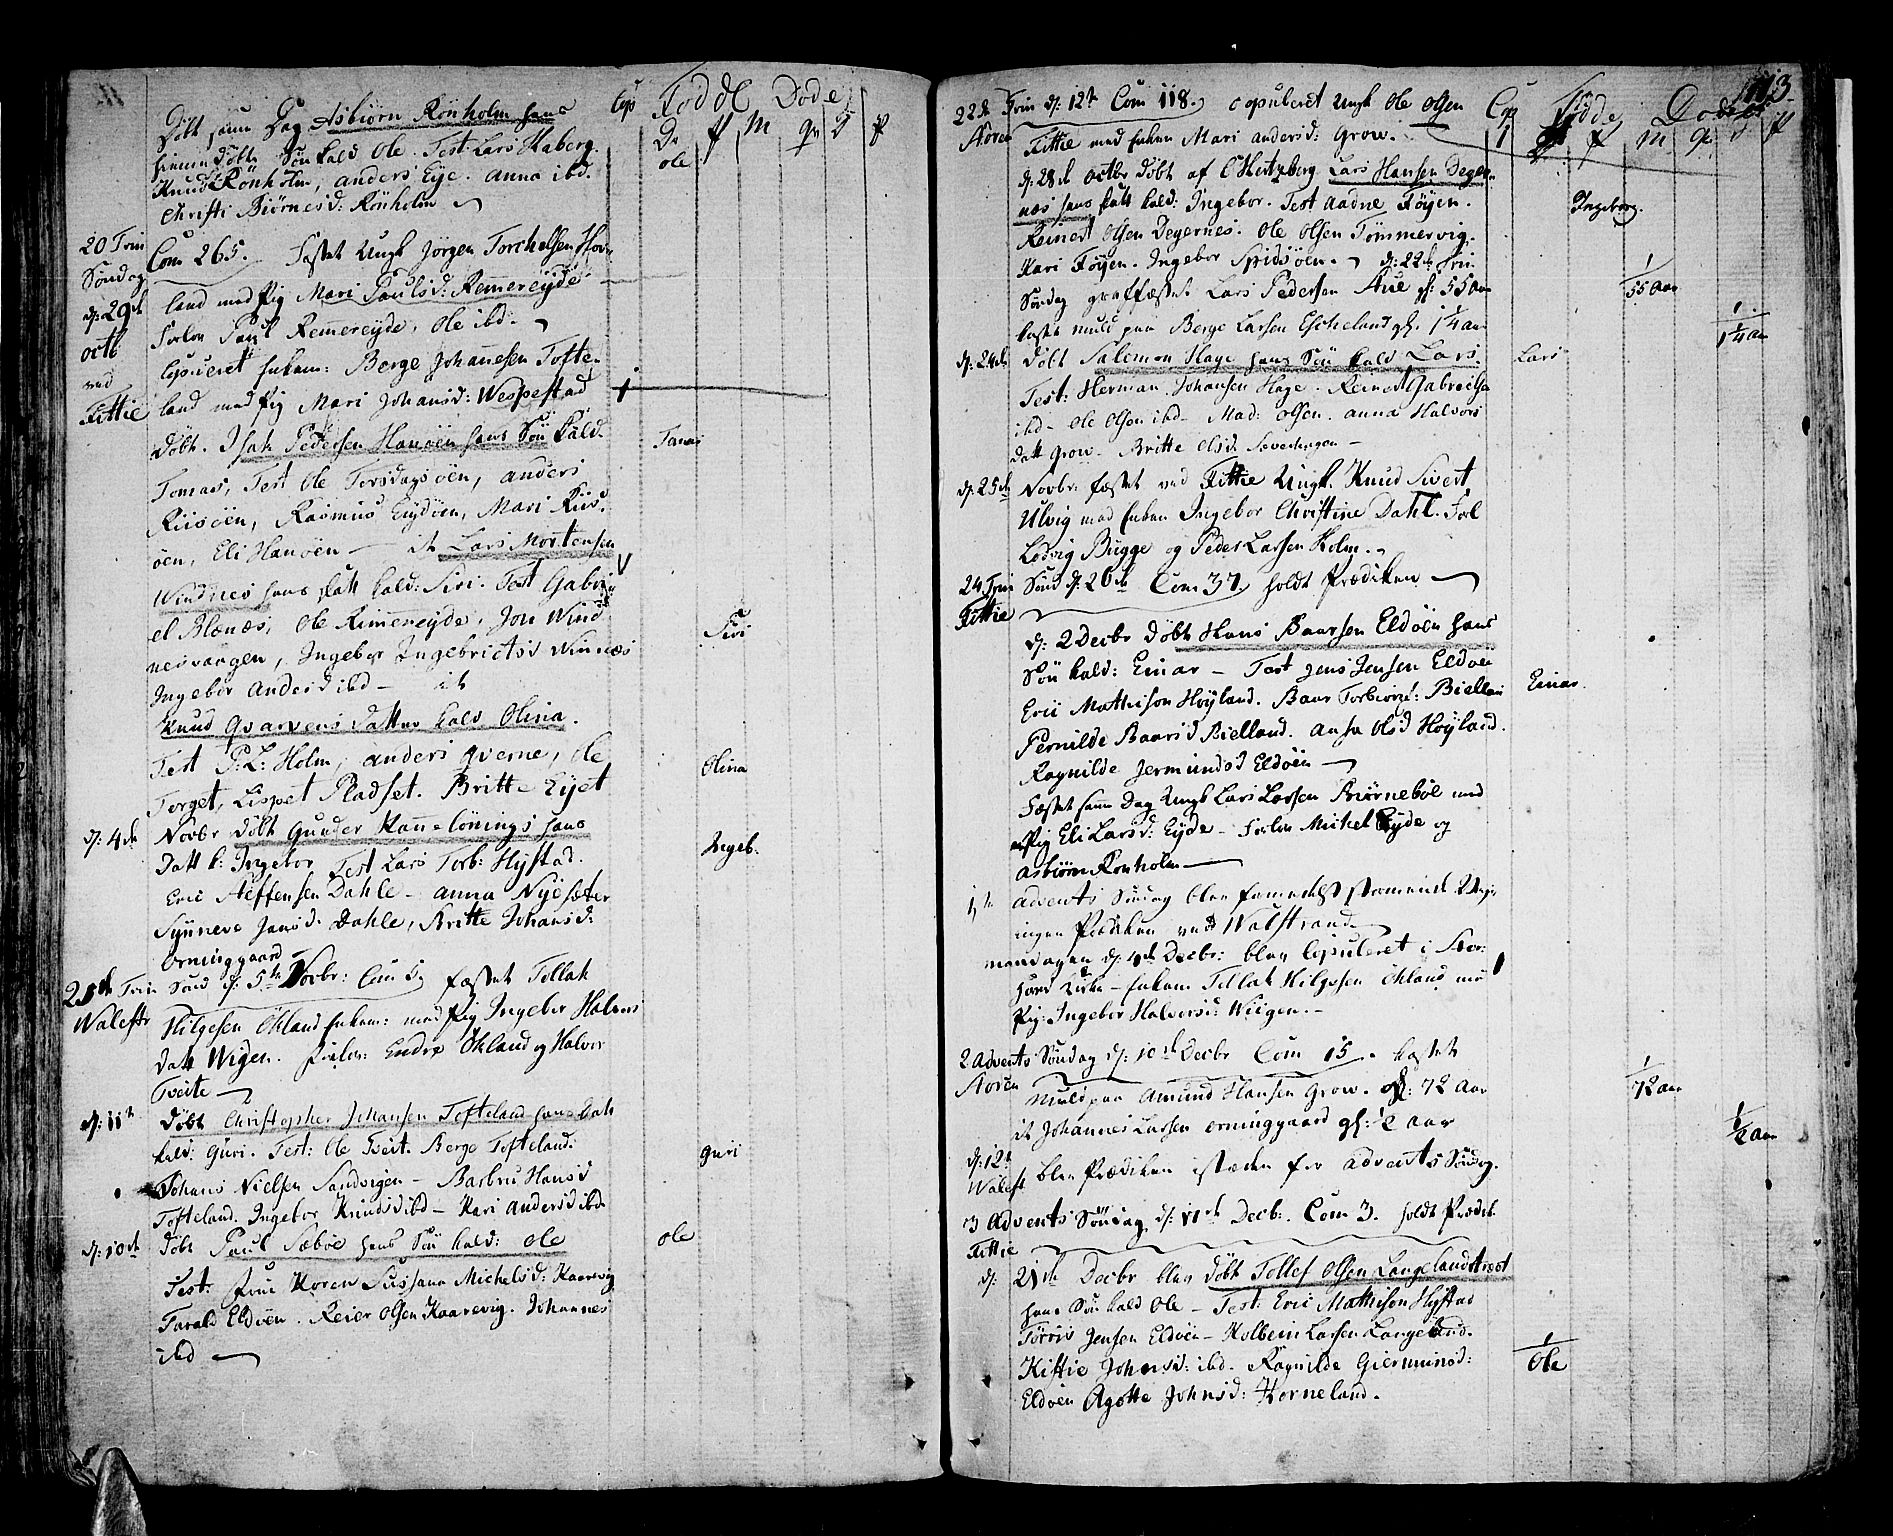 Cop Fødde Døde
Dr f m qv d f
Døbt samme Dag Asbiørn Rönholm hans
hiemmedøbte Søn kald Ole. Test. Lars Haberg.
Knud Rönholm, anders Eye. anna ibd.
Christi Biörnesd: Rönholm
ole
20 Trin
Søndag
d: 29de
octb
ved
Fittie
Com 265. Fæstet Ungk Jörgen Torchelsen Hov-
land med Pig Mari Paulsd: Remereyde
Forlov Paul Remereyde, Ole ibd.
Copuleret Enkem: Berge Johannesen Tofte-
land med Pig Mari Johansd: Wespestad
1
Døbt. Isak Pedersen Hanöen hans Søn kald.
Tomas
Tomas, Test Ole Torsdagsöen, anders
Riisöen, Rasmus Engöen, Mari Riis-
öen, Eli Hanöen – it Lars Mortensen
Windnes hans datt kald: Siri. Test Gabri-
el Blænæs, Ole Rimereyde, Jon Wind-
Siri
nesvaagen, Ingebor Ingebrictsd Winnæs
Ingebor Andersd ibd – it
Knud Qvarvens datter kald Olina.
Test P: L: Holm, anders Qverne, Ole
Olina
Torget, Lispet Pladset. Britte Eyet
d: 4de Novbr Døbt Gunder Kannelönings hans
Ingeb.
Datt k: Ingebor Test Lars Torb: Hystad.
Eric Steffensen Dahle – anna Nyesæter
Synneve Jansd: Dahle, Britte Johansd:
Orninggaard
21de Trin Sönd d: 5te Novbr: Com 5, fæstet Tollak
Walestr Hilgesen Okland Enkem: med Pig Ingebor Halvors
datt Wigen. Forlov: Endre Okland og Halvor
Tveite
d: 11te Døbt Christopher Johansen Tofteland hans Datt
kald: Guri. Test: Ole Tveit. Berge Tofteland.
Guri
Johans Nielsen Sandvigen – Barbru Hansd
Tofteland. Ingebor Knudsd ibd – Kari Andersd ibd
d: 10de Døbt Paul Sæböe hans Søn kald: Ole
ole
Test: Frue Koren Sussana Michelsd: Kaarevig
Tarald Eldöen. Reier Olsen Kaarevig. Johannes
ibd
113.
Cop Fødde Døde
m f m qv d f
22de Trin d: 12te Com 118. Copuleret Ungk Ole Olsen
Støren Fittie med Enken Mari Andersd: Grow.
1
d: 28de octbr Døbt af C Hertzberg Lars Hansen Deger-
næs hans datt kald: Ingebor. Test Aadne Föyen.
Ingeborg.
Reinert Olsen Degernes. Ole Olsen Tömmervig.
Kari Föyen. Ingebor Spidsöen. d: 22de Trin
Søndag graffæstet Lars Pedersen Aue gl: 55 Aar
1
55 Aar
kastet muld paa Berge Larsen Escheland gl. 1¼ aar
1
1¼ aar
d: 24de Døbt Salomon Hage hans Søn kald Lars.
Lars
Test: Herman Johansen Hage. Reinert Gabrielsen
ibd – Ole Olsen ibd – Mad: Olsen. anna Halvors
datt Grow – Britte Olsd.
d: 25de Novbr: fæstet ved Fittie Ungk. Knud Sivert
Ulvig med Enken Ingebor Christine Dahl. Forl
Lodvig Bugge og Peder Larsen Holm.
24 Trin Sönd d: 26de Com 37. holdt Prædiken
Fittie
d: 2 Decbr Døbt Hans Baarsen Eldöen hans
Søn kald: Einar – Test Jens Jensen Eldöen
Einar.
Eric Mathison Höyland. Baar Torbiörs: Bielland
Pernilde Baarsd Bielland. Anna Olsd Höyland.
Ragnilde Jermundsd Eldöen
Fæstet samme Dag Ungk Lars Larsen Biörneböe med
Pig Eli Larsd: Eyde – Forlov Michel Eyde og
Asbiörn Rönholm
1te Advents Søndag blev formedelst stormende Veir
ingen Prædiken ved Walestrand
mandagen d: 4de Decbr: blev Copuleret i Stor-
1
hörd Kirke – Enkem Tollak Hilgesen Okland med
Pig: Ingebor Halvorsd: Wiigen.
2 Advents Søndag d: 10de Decbr Com 15. kastet
Støren muld paa Amund Hansen Grow. gl: 72 Aar
1
72 aar
it Johannes Larsen Orninggaard gl: ½ aar
1
½ aar
d: 12te
Walest blev Prædiken istæden for Advents Søndag.
3 Advents Søndag d: 17de Decb:. Com 3. holdt Prædik
Fittie
d: 21de Decbr blev Døbt Tollef Olsen Langelandstræet
hans Søn kald Ole – Test: Eric Mathison Hystad
Törris Jensen Eldöen – Kolbein Larsen Langeland.
1
Ole
Kittie Johnsd: ibd. Ragnilde Giermunsd:
Eldöen Agotte Johnsd: Horneland.